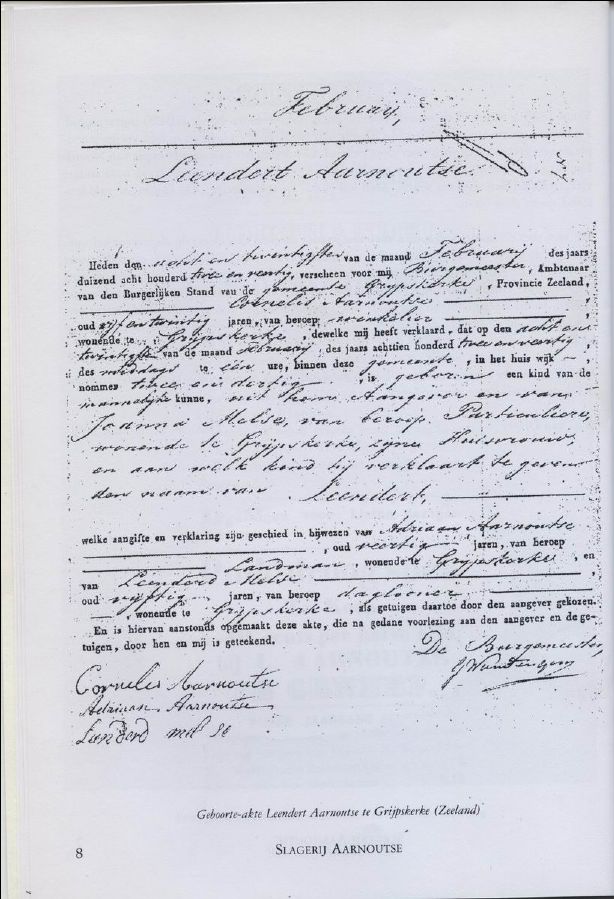 February,
Leendert Aarnoutse.
Heden den acht en twintigsten van de maand February des jaars
duizend acht honderd twee en veertig, verscheen voor mij Burgemeester, Ambtenaar
van den Burgerlijken Stand van de gemeente Grijpskerke, Provincie Zeeland,
Cornelis Aarnoutse
oud vijf en twintig jaren, van beroep winkelier
wonende te Grijpskerke, dewelke mij heeft verklaard, dat op den acht en
twintigsten van de maand February des jaars achttien honderd twee en veertig,
des middags te een ure, binnen deze gemeente, in het huis wijk —,
nommer twee en dertig, is geboren een kind van de
mannelijke kunne, uit hem Aangever en van
Joanna Melse, van beroep Particuliere,
wonende te Grijpskerke, zijne Huisvrouw,
en aan welk kind hij verklaart te geven
den naam van Leendert,
welke aangifte en verklaring zijn geschied in bijwezen van Adriaan Aarnoutse
, oud veertig jaren, van beroep
Landman, wonende te Grijpskerke, en
van Leenderd Melse
oud vijftig jaren, van beroep daglooner
—, wonende te Grijpskerke, als getuigen daartoe door den aangever gekozen.
En is hiervan aanstonds opgemaakt deze akte, die na gedane voorlezing aan den aangever en de ge-
tuigen, door hen en mij is geteekend.
De Burgemeester,
Cornelis Aarnoutse
Adriaan Aarnoutse
Leenderd melse
Geboorte-akte Leendert Aarnoutse te Grijpskerke (Zeeland)
8 SLAGERIJ AARNOUTSE